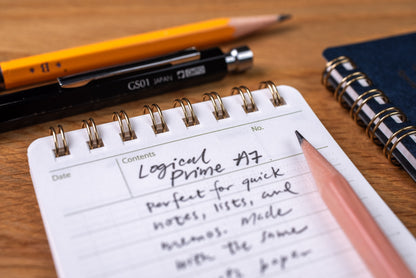 B
GS01 JAPAN
No.
Contents
Date
Logical
Prime A7
Perfect for quick
notes, lists, and
memos. Made
with the same
paper